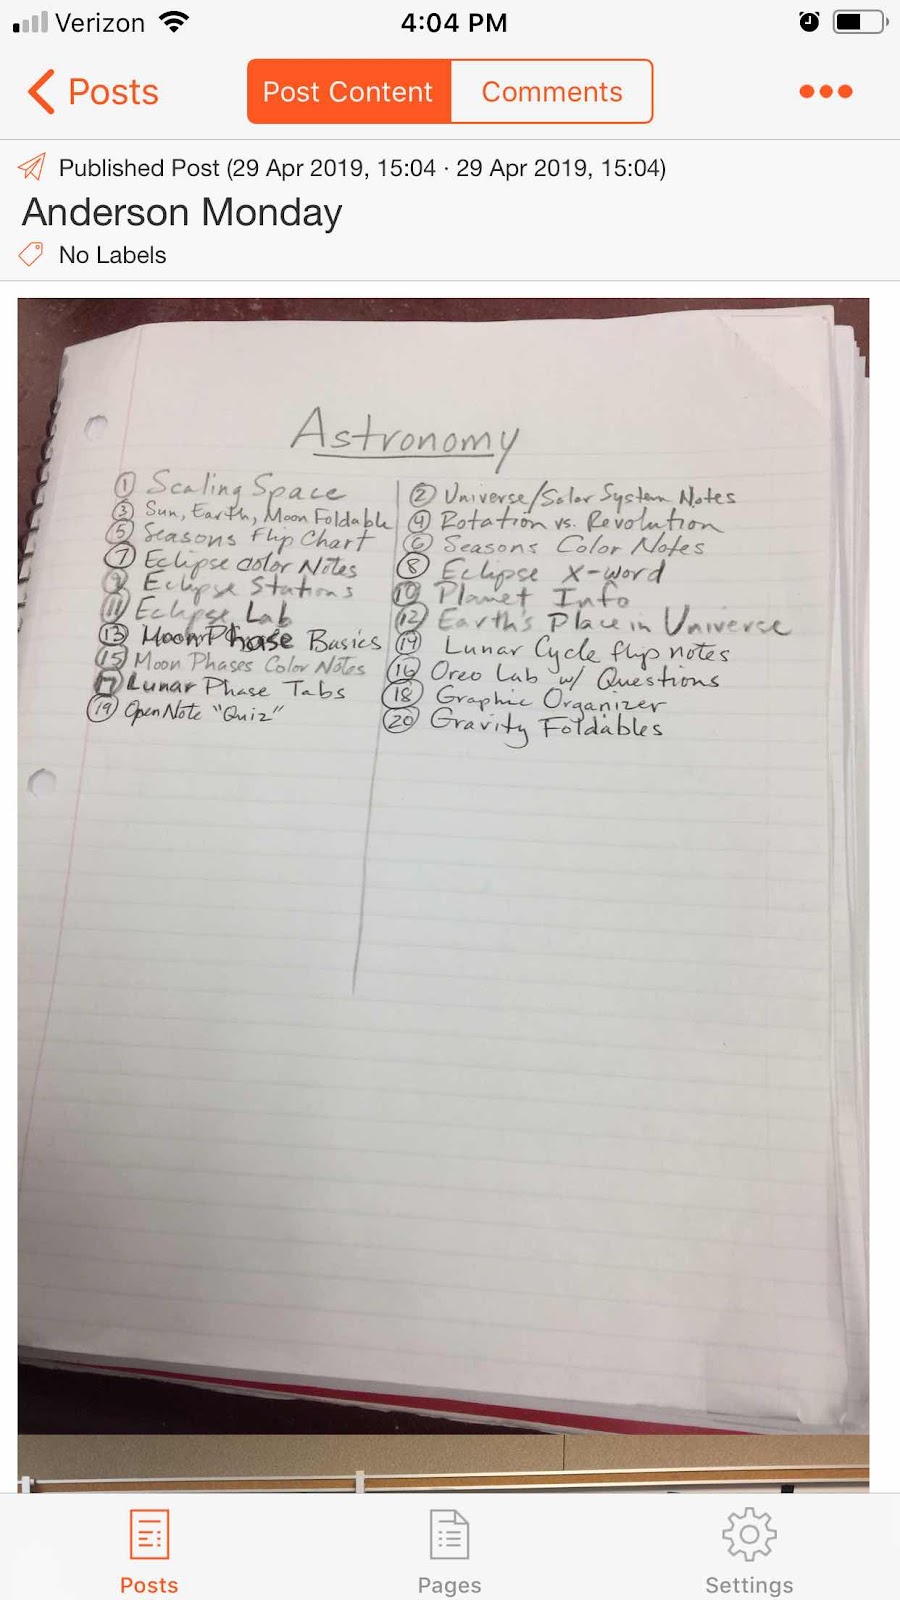 Verizon 4:04 PM
Posts Post Content Comments
Published Post (29 Apr 2019, 15:04 · 29 Apr 2019, 15:04)
Anderson Monday
No Labels
Astronomy
1 Scaling Space 2 Universe/Solar System Notes
3 Sun, Earth, Moon Foldable 4 Rotation vs. Revolution
5 Seasons Flip Chart 6 Seasons Color Notes
7 Eclipse color Notes 8 Eclipse X-word
9 Eclipse Stations 10 Planet Info
11 Eclipse Lab 12 Earth's Place in Universe
13 Moon Phase Basics 14 Lunar Cycle flip notes
15 Moon Phases Color Notes 16 Oreo Lab w/ Questions
17 Lunar Phase Tabs 18 Graphic Organizer
19 Open Note "Quiz" 20 Gravity Foldables
Posts Pages Settings